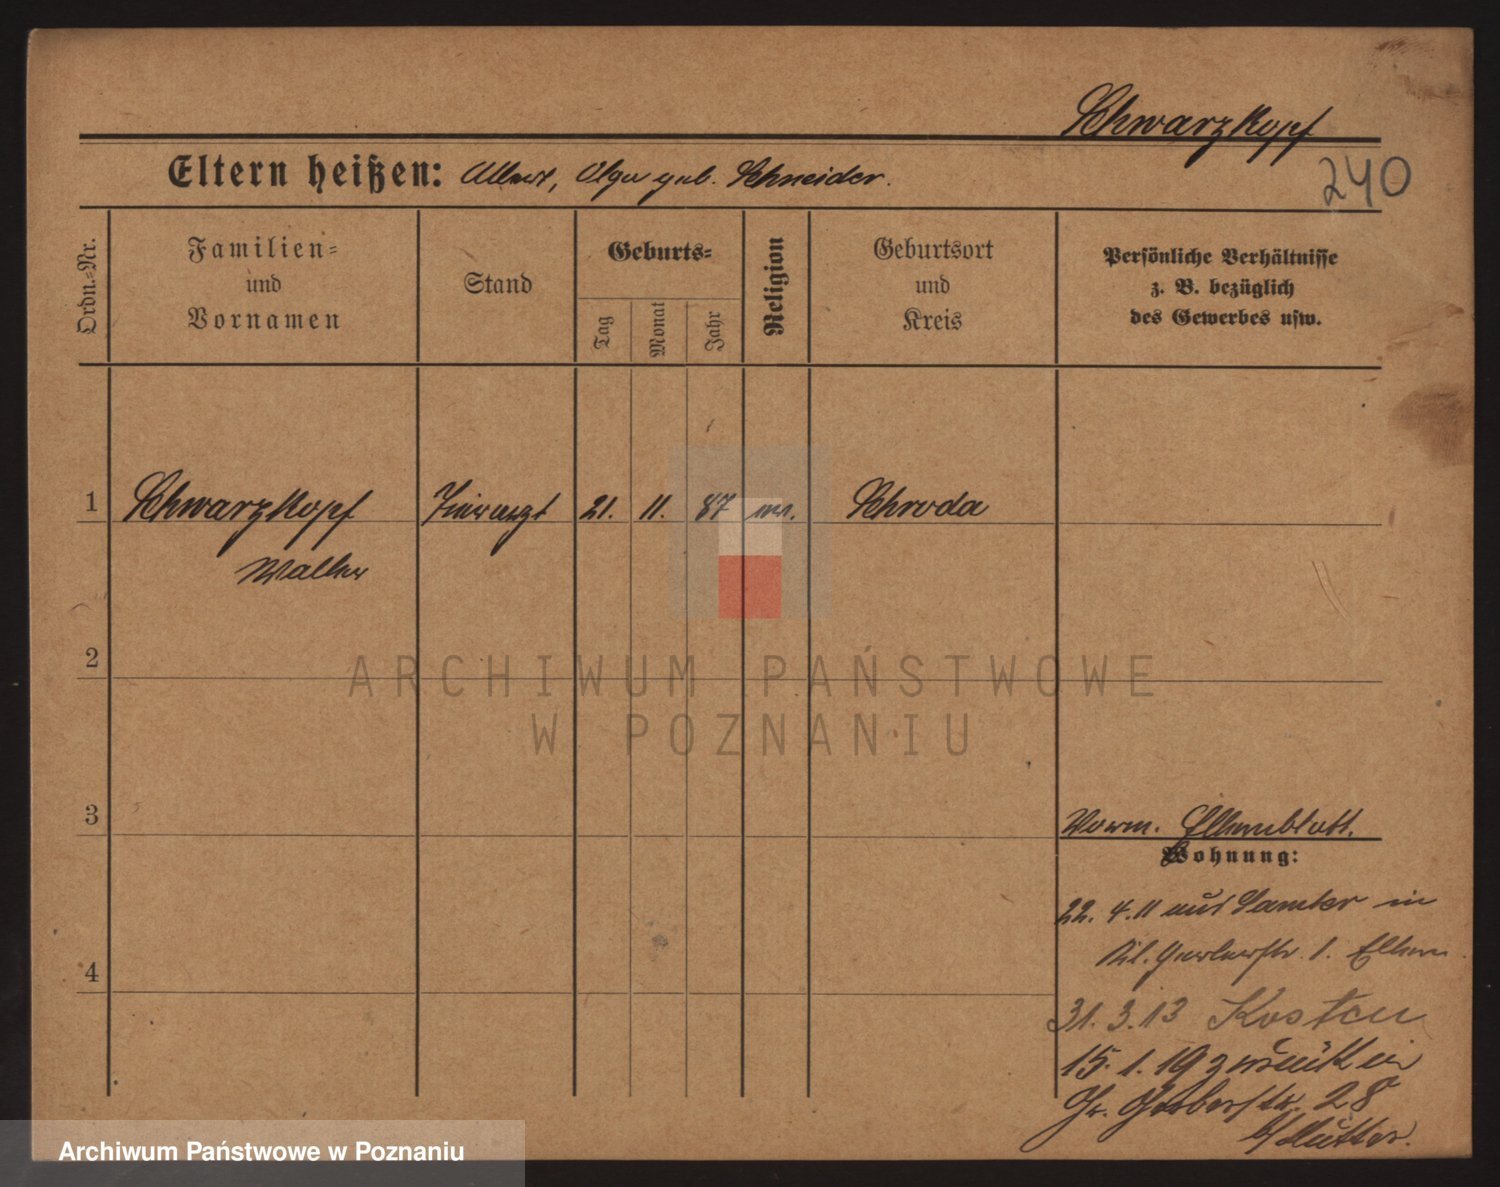 Schwarzkopf
240
Eltern heißen: Albert, Olga geb. Schneider.
Ordn.=Nr.
Familien=
und
Vornamen
Stand
Geburts=
Tag
Monat
Jahr
Religion
Geburtsort
und
Kreis
Persönliche Verhältnisse
z. B. bezüglich
des Gewerbes usw.
1 Schwarzkopf 21. 11. 87 Schroda
Walter
ARCHIWUM PAŃSTWOWE
W POZNANIU
2
3
Vorm. Elternblatt.
Wohnung:
22. 4. 11 aus Samter in
Kl. Gerberstr. 1. Eltern.
4
31. 3. 13 Kosten
15. 1. 19 zurück in
Gr. Gerberstr. 28
b/Mutter.
Archiwum Państwowe w Poznaniu